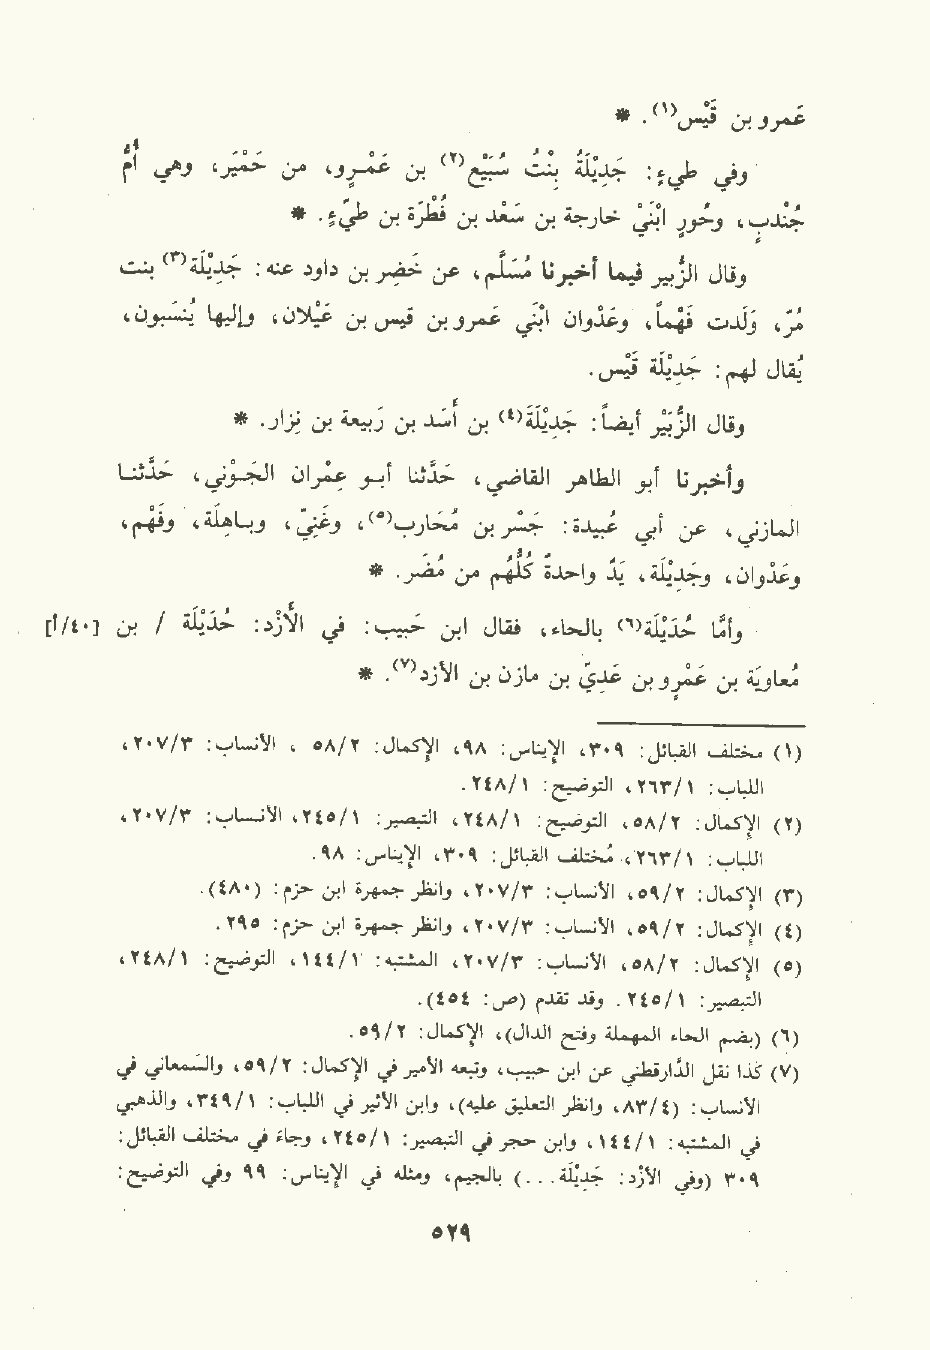 عَمرو بن قَيْس(١). *
وفي طيءٍ: جَدِيْلَةُ بِنْتُ سُبَيْع(٢) بن عَمْـرٍو، من حَمْيَر، وهي أُمُّ
جُنْدبٍ، وحُورٍ ابْنَيْ خارجة بن سَعْد بن فُطْرَة بن طيّءٍ. *
وقال الزُبير فيما أخبرنا مُسَلَّم، عن خَضِر بن داود عنه: جَدِيْلَة(٣) بنت
مُرّ، وَلَدت فَهْماً، وعَدْوان ابْنَي عمرو بن قيس بن عَيْلان، وإليها يُنْسَبون،
يُقال لهم: جَدِيْلَة قَيْس.
وقال الزُّبَيْر أيضاً: جَدِيْلَةَ(٤) بن أَسَد بن رَبيعة بن نِزار. *
وأخبرنا أبو الطاهر القاضي، حَدَّثنا أبـو عِمْران الجَـوْني، حَدَّثنـا
المازني، عن أبي عُبيدة: جَسْر بن مُحَارب(٥)، وغَنِيّ، وبـاهِلَة، وفَهْم،
وعَدْوان، وجَدِيْلَة، يَدّ واحدةٌ كُلُّهُم من مُضَر. *
وأمَّا حُدَيْلَة(٦) بالحاء، فقال ابن حَبيب: في الأَزْد: حُدَيْلَة / بن [٤٠/أ]
مُعاويَة بن عَمْرٍو بن عَدِيّ بن مازن بن الأزد(٧). *
(١) مختلف القبائل: ٣٠٩، الإيناس: ٩٨، الإكمال: ٥٨/٢، الأنساب: ٢٠٧/٣،
اللباب: ٢٦٣/١، التوضيح: ٢٤٨/١.
(٢) الإكمال: ٥٨/٢، التوضيح: ٢٤٨/١، التبصير: ٢٤٥/١، الأنساب: ٢٠٧/٣،
اللباب: ٢٦٣/١، مُختلف القبائل: ٣٠٩، الإيناس: ٩٨.
(٣) الإكمال: ٥٩/٢، الأنساب: ٢٠٧/٣، وانظر جمهرة ابن حزم: (٤٨٠).
(٤) الإكمال: ٥٩/٢، الأنساب: ٢٠٧/٣، وانظر جمهرة ابن حزم: ٢٩٥.
(٥) الإكمال: ٥٨/٢، الأنساب: ٢٠٧/٣، المشتبه: ١٤٤/١، التوضيح: ٢٤٨/١،
التبصير: ٢٤٥/١. وقد تقدم (ص: ٤٥٤).
(٦) (بضم الحاء المهملة وفتح الدال)، الإكمال: ٥٩/٢.
(٧) كَذا نقل الدَّارقطني عن ابن حبيب، وتبعه الأمير في الإكمال: ٥٩/٢، والسَمعاني في
الأنساب: (٨٣/٤، وانظر التعليق عليه)، وابن الأثير في اللباب: ٣٤٩/١، والذهبي
في المشتبه: ١٤٤/١، وابن حجر في التبصير: ٢٤٥/١، وجاءَ في مختلف القبائل:
٣٠٩ (وفي الأزْد: جَدِيْلَة...) بالجيم، ومثله في الإيناس: ٩٩ وفي التوضيح:
٥٢٩